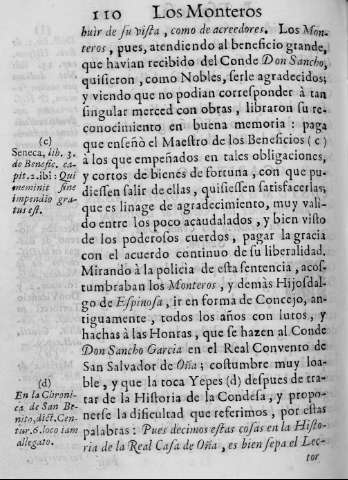 110 Los Monteros
buir de su vista, como de acreedores. Los Mon-
teros, pues, atendiendo al beneficio grande,
que havian recibido del Conde Don Sancho,
quisieron, como Nobles, serle agradecidos;
y viendo que no podian corresponder à tan
singular merced con obras, libraron su re-
conocimiento en buena memoria: paga
que enseñò el Maestro de los Beneficios (c)
à los que empeñados en tales obligaciones,
y cortos de bienes de fortuna, con que pu-
diessen salir de ellas, quisiessen satisfacerlas;
que es linage de agradecimiento, muy vali-
do entre los poco acaudalados, y bien visto
de los poderosos cuerdos, pagar la gracia
con el acuerdo continuo de su liberalidad.
Mirando à la policia de esta sentencia, acos-
tumbraban los Monteros, y demàs Hijosdal-
go de Espinosa, ir en forma de Concejo, an-
tiguamente, todos los años con lutos, y
hachas à las Honras, que se hazen al Conde
Don Sancho Garcia en el Real Convento de
San Salvador de Oña; costumbre muy loa-
ble, y que la toca Yepes (d) despues de tra-
tar de la Historia de la Condesa, y propo-
nerse la dificultad que referimos, por estas
palabras: Pues decimos estas cosas en la Histo-
ria de la Real Casa de Oña, es bien sepa el Lec-
tor
(c)
Seneca, lib. 3.
de Benefic. ca-
pit. 2. ibi: Qui
meminit sine
impendio gra-
tus est.
(d)
En la Chroni-
ca de San Be-
nito, dict. Cen-
tur. 6. loco iam
allegato.